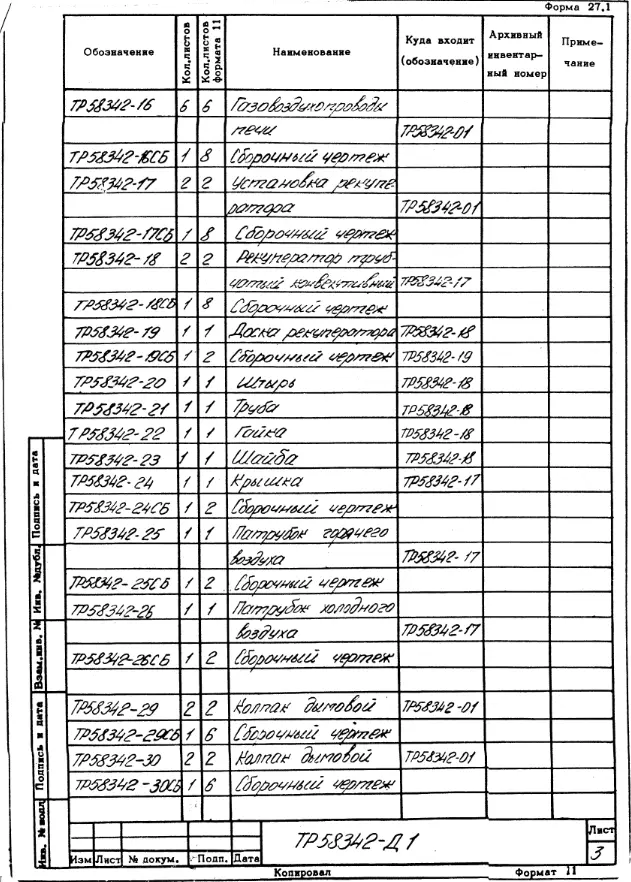 Форма 27.1
Обозначение Кол.листов Кол.листов формата 11 Наименование Куда входит (обозначение) Архивный инвентарный номер Примечание
ТР58342-16 6 6 Газовоздухопроводы
печи ТР58342-01
ТР58342-16СБ 1 8 Сборочный чертеж
ТР58342-17 2 2 Установка рекупе-
ратора ТР58342-01
ТР58342-17СБ 1 8 Сборочный чертеж
ТР58342-18 2 2 Рекуператор труб-
чатый конвективный ТР58342-17
ТР58342-18СБ 1 8 Сборочный чертеж
ТР58342-19 1 1 Доска рекуператора ТР58342-18
ТР58342-19СБ 1 2 Сборочный чертеж ТР58342-19
ТР58342-20 1 1 Штырь ТР58342-18
ТР58342-21 1 1 Труба ТР58342-18
ТР58342-22 1 1 Гайка ТР58342-18
ТР58342-23 1 1 Шайба ТР58342-18
ТР58342-24 1 1 Крышка ТР58342-17
ТР58342-24СБ 1 2 Сборочный чертеж
ТР58342-25 1 1 Патрубок горячего
воздуха ТР58342-17
ТР58342-25СБ 1 2 Сборочный чертеж
ТР58342-26 1 1 Патрубок холодного
воздуха ТР58342-17
ТР58342-26СБ 1 2 Сборочный чертеж
ТР58342-29 2 2 Колпак дымовой ТР58342-01
ТР58342-29СБ 1 6 Сборочный чертеж
ТР58342-30 2 2 Колпак дымовой ТР58342-01
ТР58342-30СБ 1 6 Сборочный чертеж
Инв. № подл. Подпись и дата Взам.инв. № Инв. №дубл. Подпись и дата
Изм Лист № докум. Подп. Дата
ТР58342-Д1
Лист
3
Копировал Формат 11